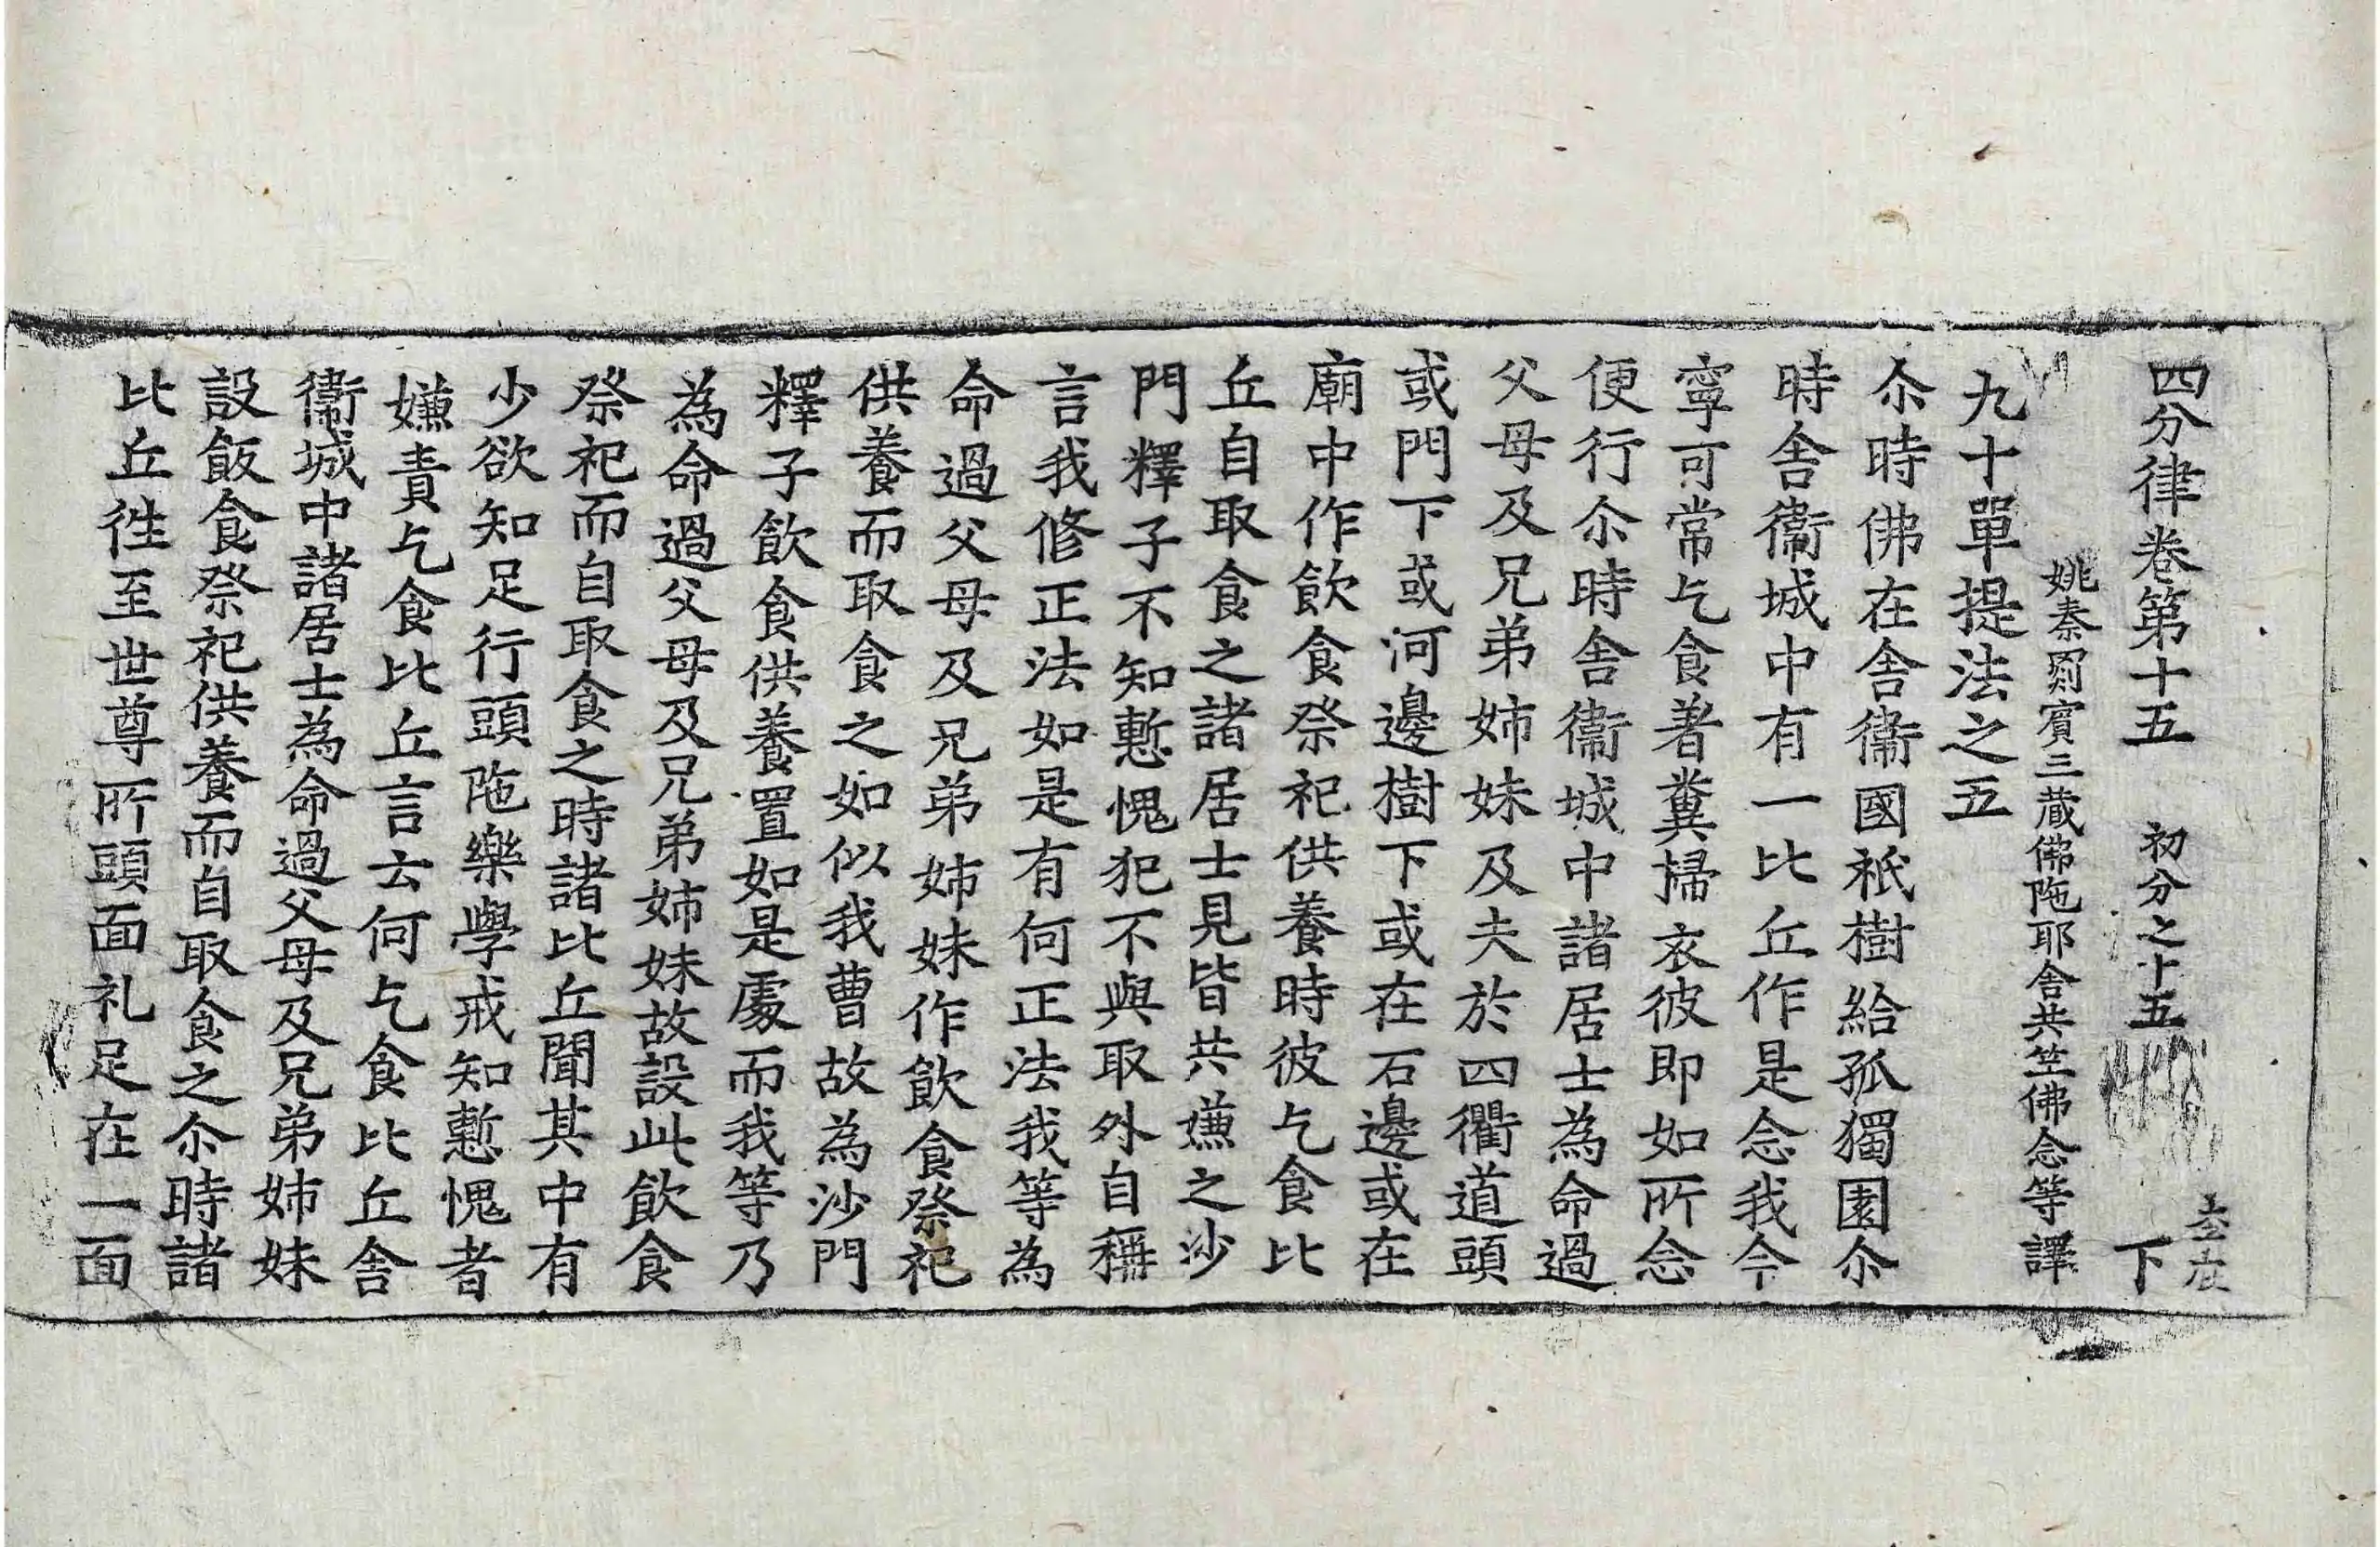 四分律卷第十五 初分之十五 下
姚秦罽賓三蔵佛陁耶舍共竺佛念等譯
九十單提法之五
尒時佛在舍衛國祇樹給孤獨園尒
時舍衛城中有一比丘作是念我今
寧可常乞食著糞掃衣彼即如所念
便行尒時舍衛城中諸居士為命過
父母及兄弟姉妹及夫於四衢道頭
或門下或河邊樹下或在石邊或在
廟中作飲食祭祀供養時彼乞食比
丘自取食之諸居士見皆共嫌之沙
門釋子不知慙愧犯不與取外自稱
言我修正法如是有何正法我等為
命過父母及兄弟姉妹作飲食祭祀
供養而取食之如似我曹故為沙門
釋子飲食供養置如是處而我等乃
為命過父母及兄弟姉妹故設此飲食
祭祀而自取食之時諸比丘聞其中有
少欲知足行頭陁樂學戒知慙愧者
嫌責乞食比丘言云何乞食比丘舍
衛城中諸居士為命過父母及兄弟姉妹
設飯食祭祀供養而自取食之尒時諸
比丘徃至世尊所頭面礼足在一面